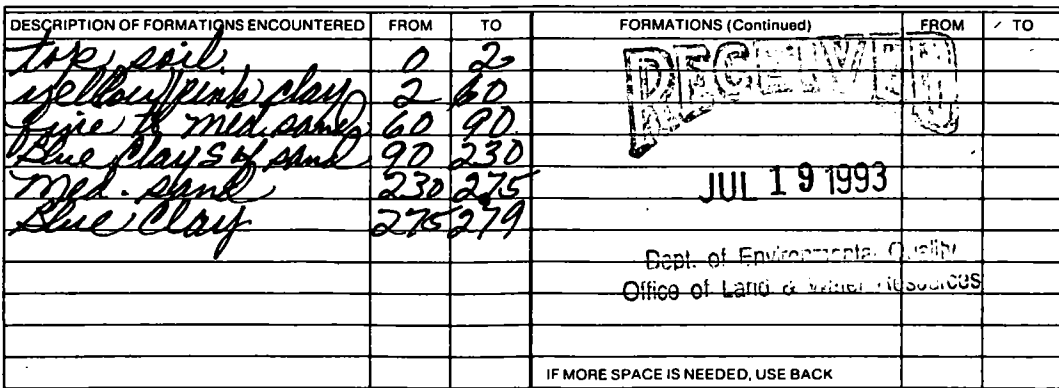 DESCRIPTION OF FORMATIONS ENCOUNTERED FROM TO FORMATIONS (Continued) FROM TO
top soil 0 2
yellow/pink clay 2 60
fine to med. sand 60 90
Blue Clays & sand 90 230
Med. sand 230 275
Blue Clay 275 279
RECEIVED
JUL 19 1993
Dept. of Environmental Quality
Office of Land & Water Resources
IF MORE SPACE IS NEEDED, USE BACK